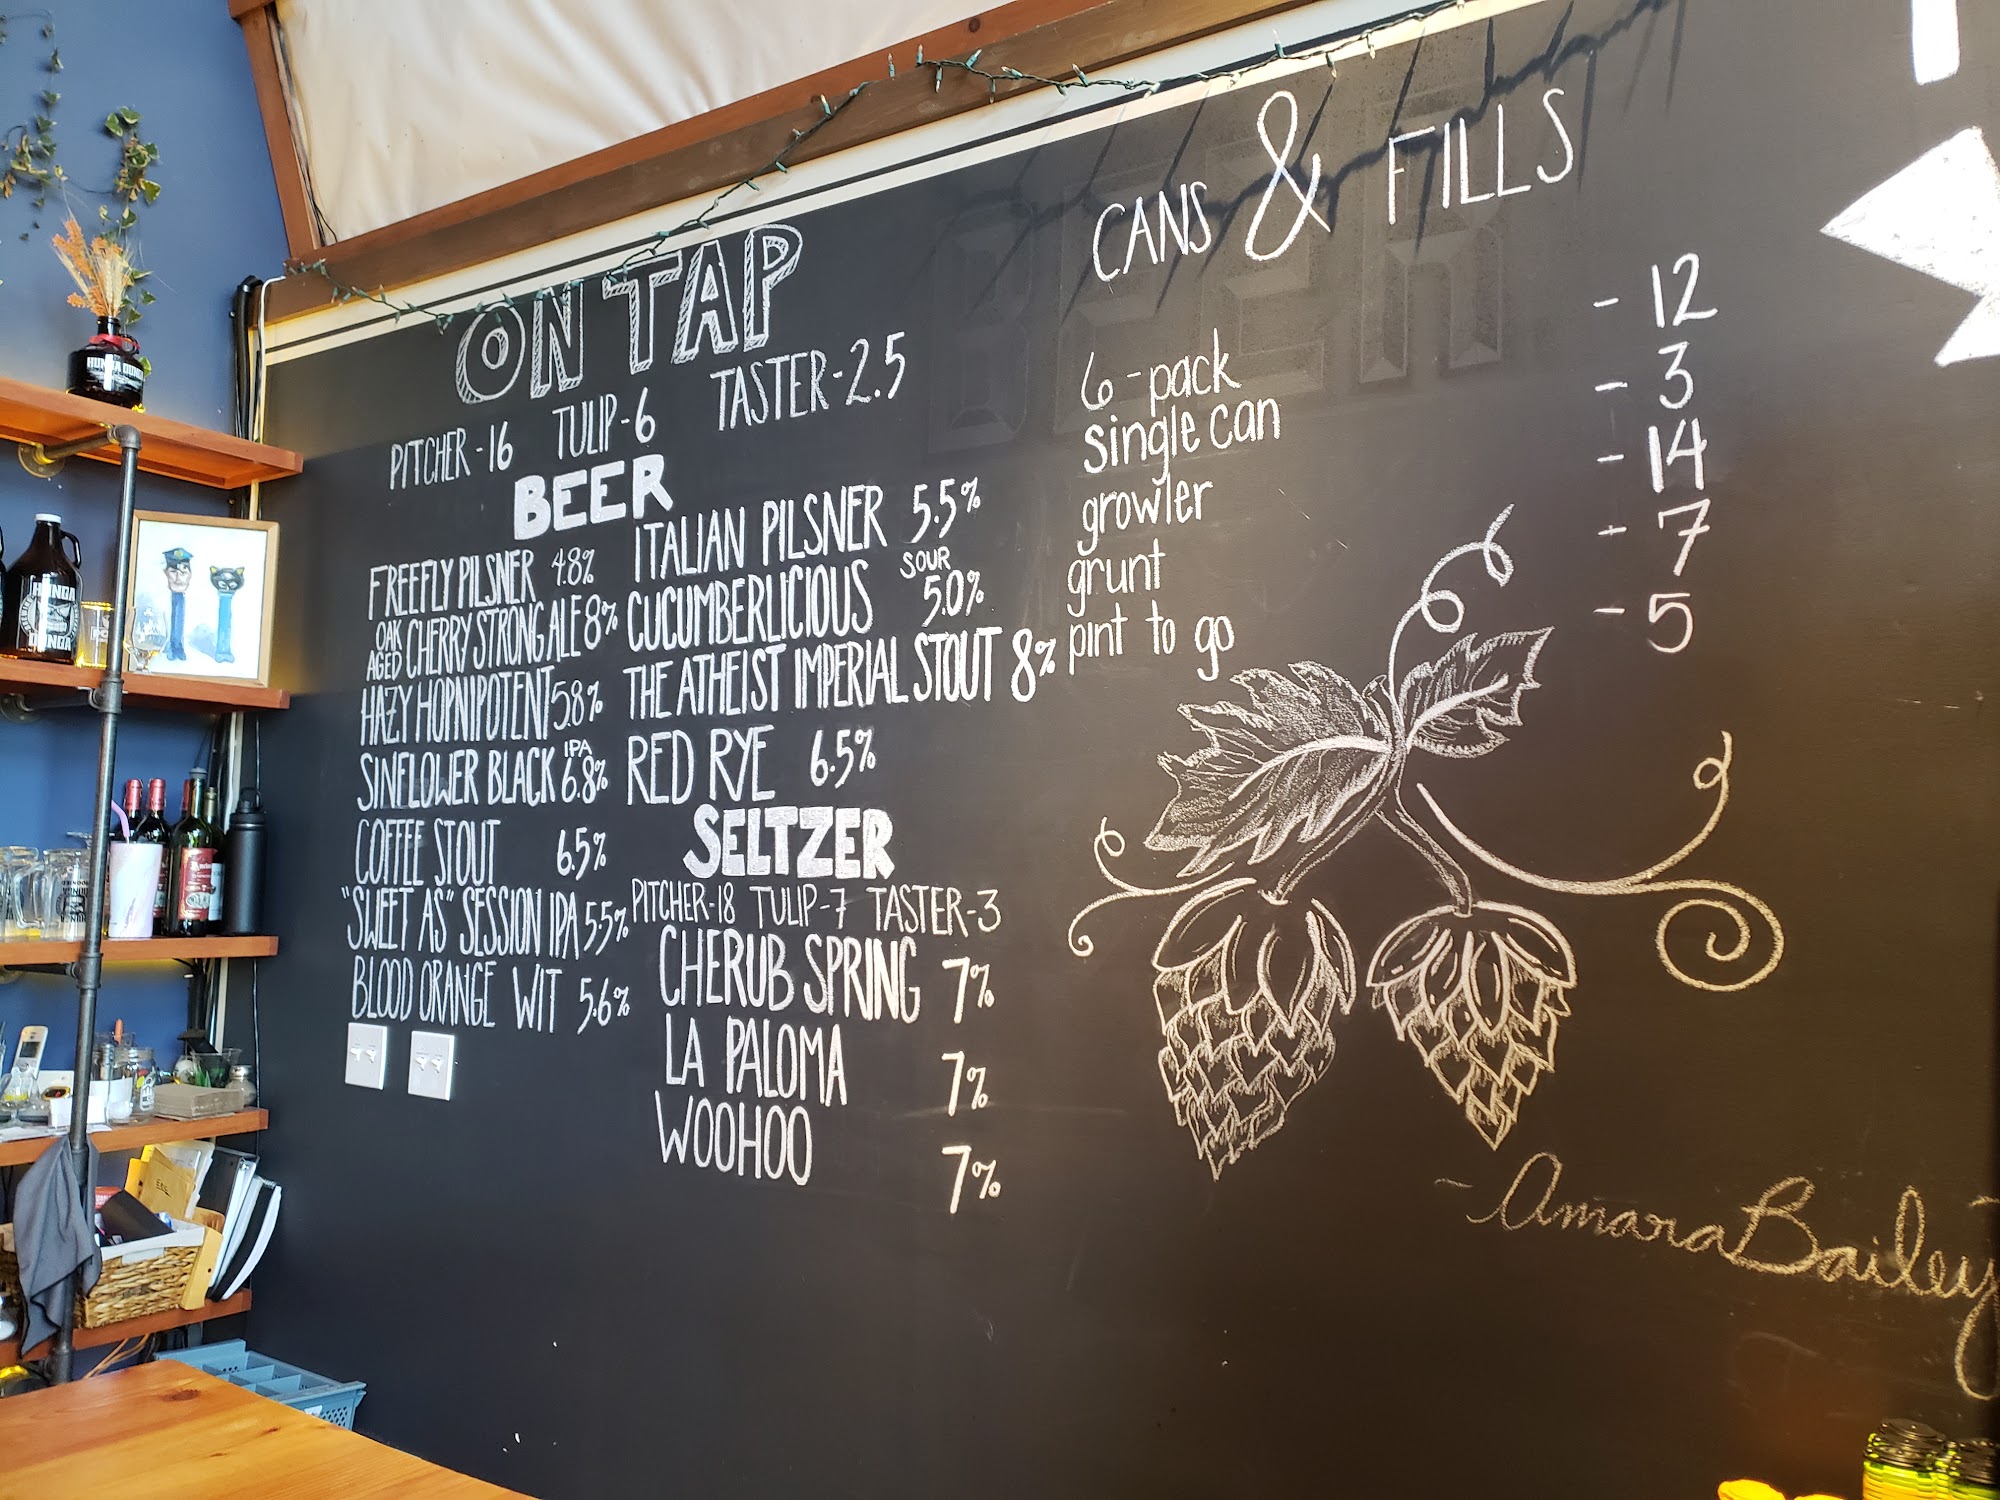 ON TAP
PITCHER - 16 TULIP - 6 TASTER - 2.5
BEER
FREEFLY PILSNER 4.8%
OAK AGED CHERRY STRONG ALE 8%
HAZY HOPNIPOTENT 5.8%
SINFLOWER BLACK IPA 6.8%
COFFEE STOUT 6.5%
"SWEET AS" SESSION IPA 5.5%
BLOOD ORANGE WIT 5.6%
ITALIAN PILSNER 5.5%
CUCUMBERLICIOUS SOUR 5.0%
THE ATHEIST IMPERIAL STOUT 8%
RED RYE 6.5%
SELTZER
PITCHER - 18 TULIP - 7 TASTER - 3
CHERUB SPRING 7%
LA PALOMA 7%
WOOHOO 7%
CANS & FILLS
6 - pack - 12
single can - 3
growler - 14
grunt - 7
pint to go - 5
BEER
- Amara Bailey
HUNGA DUNGA
HUNGA
DUNGA